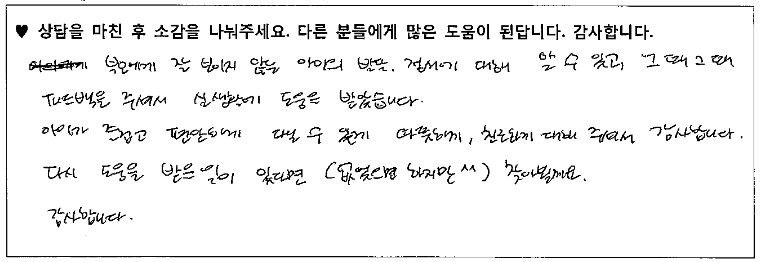 ♥ 상담을 마친 후 소감을 나눠주세요. 다른 분들에게 많은 도움이 된답니다. 감사합니다.
부모에게 잘 보이지 않는 아이의 발달, 정서에 대해 알 수 있고, 그때그때
피드백을 주셔서 실생활에 도움을 받았습니다.
아이가 즐겁고 편안하게 다닐 수 있게 따뜻하게, 친절하게 대해 주셔서 감사합니다.
다시 도움을 받을 일이 있다면 (없었으면 하지만 ^^) 찾아뵐께요.
감사합니다.